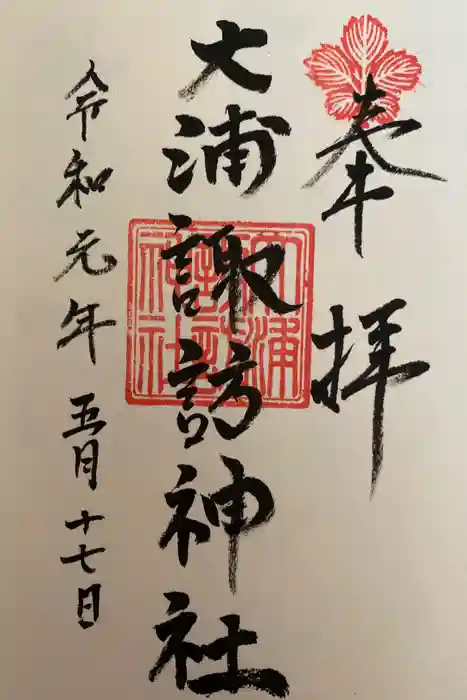 奉拝
大浦諏訪神社
大浦諏訪神社
令和元年五月十七日